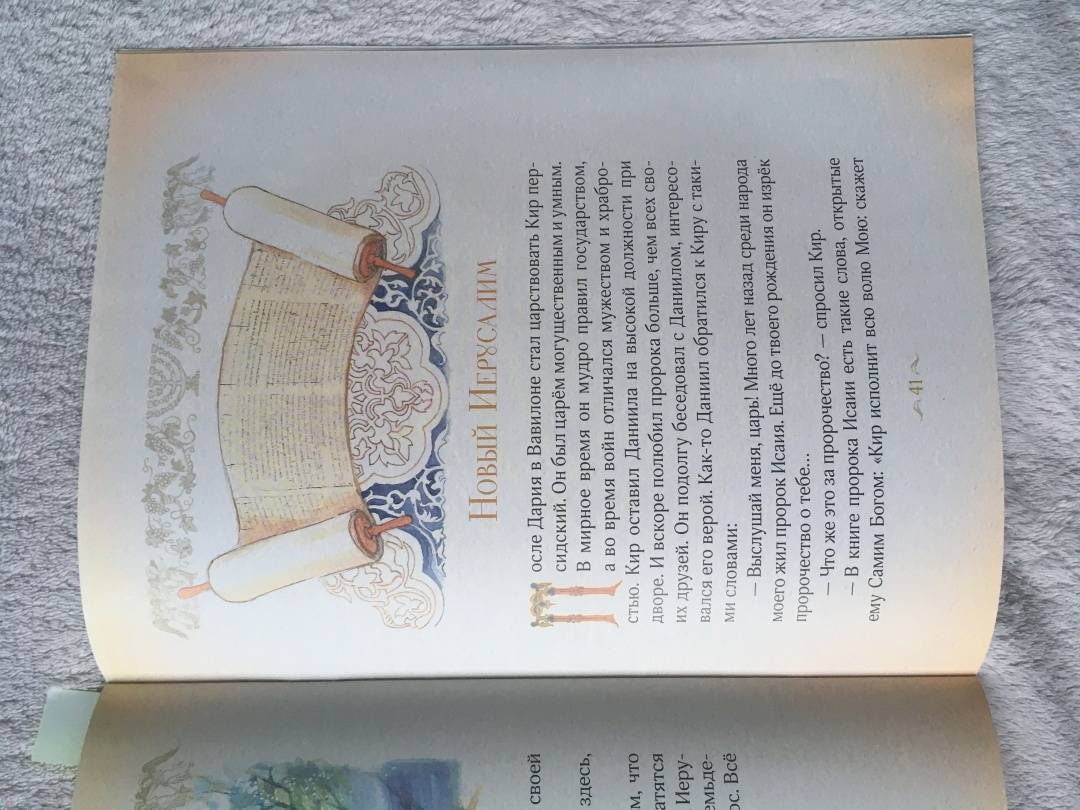 Новый Иерусалим
После Дария в Вавилоне стал царствовать Кир пер-
сидский. Он был царём могущественным и умным.
В мирное время он мудро правил государством,
а во время войн отличался мужеством и храбро-
стью. Кир оставил Даниила на высокой должности при
дворе. И вскоре полюбил пророка больше, чем всех сво-
их друзей. Он подолгу беседовал с Даниилом, интересо-
вался его верой. Как-то Даниил обратился к Киру с таки-
ми словами:
— Выслушай меня, царь! Много лет назад среди народа
моего жил пророк Исаия. Ещё до твоего рождения он изрёк
пророчество о тебе...
— Что же это за пророчество? — спросил Кир.
— В книге пророка Исаии есть такие слова, открытые
ему Самим Богом: «Кир исполнит всю волю Мою: скажет
41
своей
здесь,
м, что
атятся
Иеру-
емьде-
ос. Всё